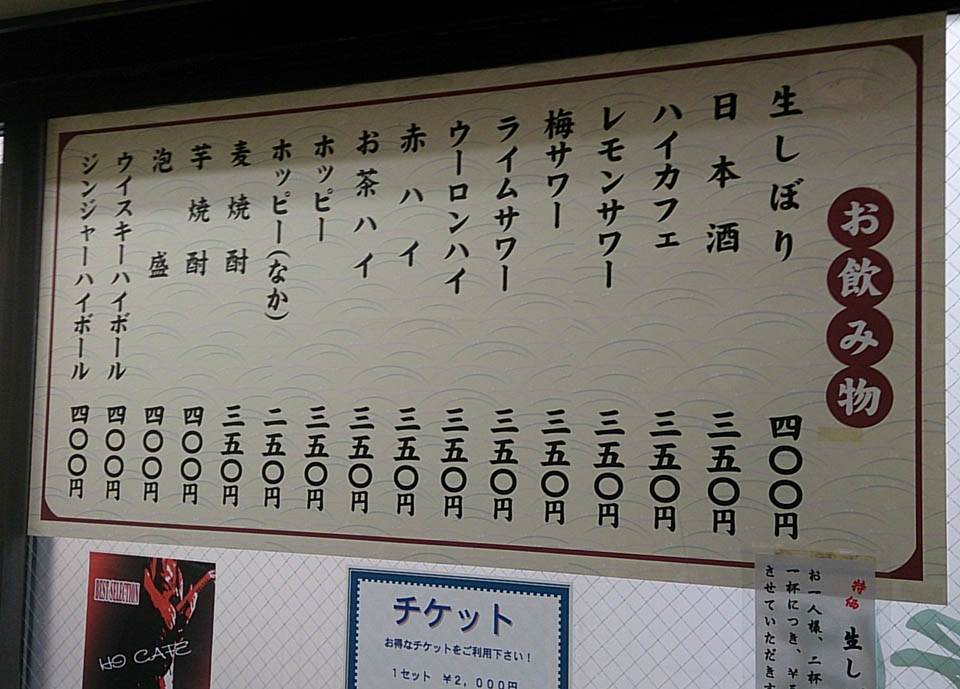 お飲み物
生しぼり 四〇〇円
日本酒 三五〇円
ハイカフェ 三五〇円
レモンサワー 三五〇円
梅サワー 三五〇円
ライムサワー 三五〇円
ウーロンハイ 三五〇円
赤ハイ 三五〇円
お茶ハイ 三五〇円
ホッピー 三五〇円
ホッピー(なか) 二五〇円
麦焼酎 三五〇円
芋焼酎 四〇〇円
泡盛 四〇〇円
ウイスキーハイボール 四〇〇円
ジンジャーハイボール 四〇〇円
BEST SELECTION
HO CAFE
チケット
お得なチケットをご利用下さい!
1セット ¥2,000円
特価 生し
お一人様、二杯
一杯につき、¥
させていただきす